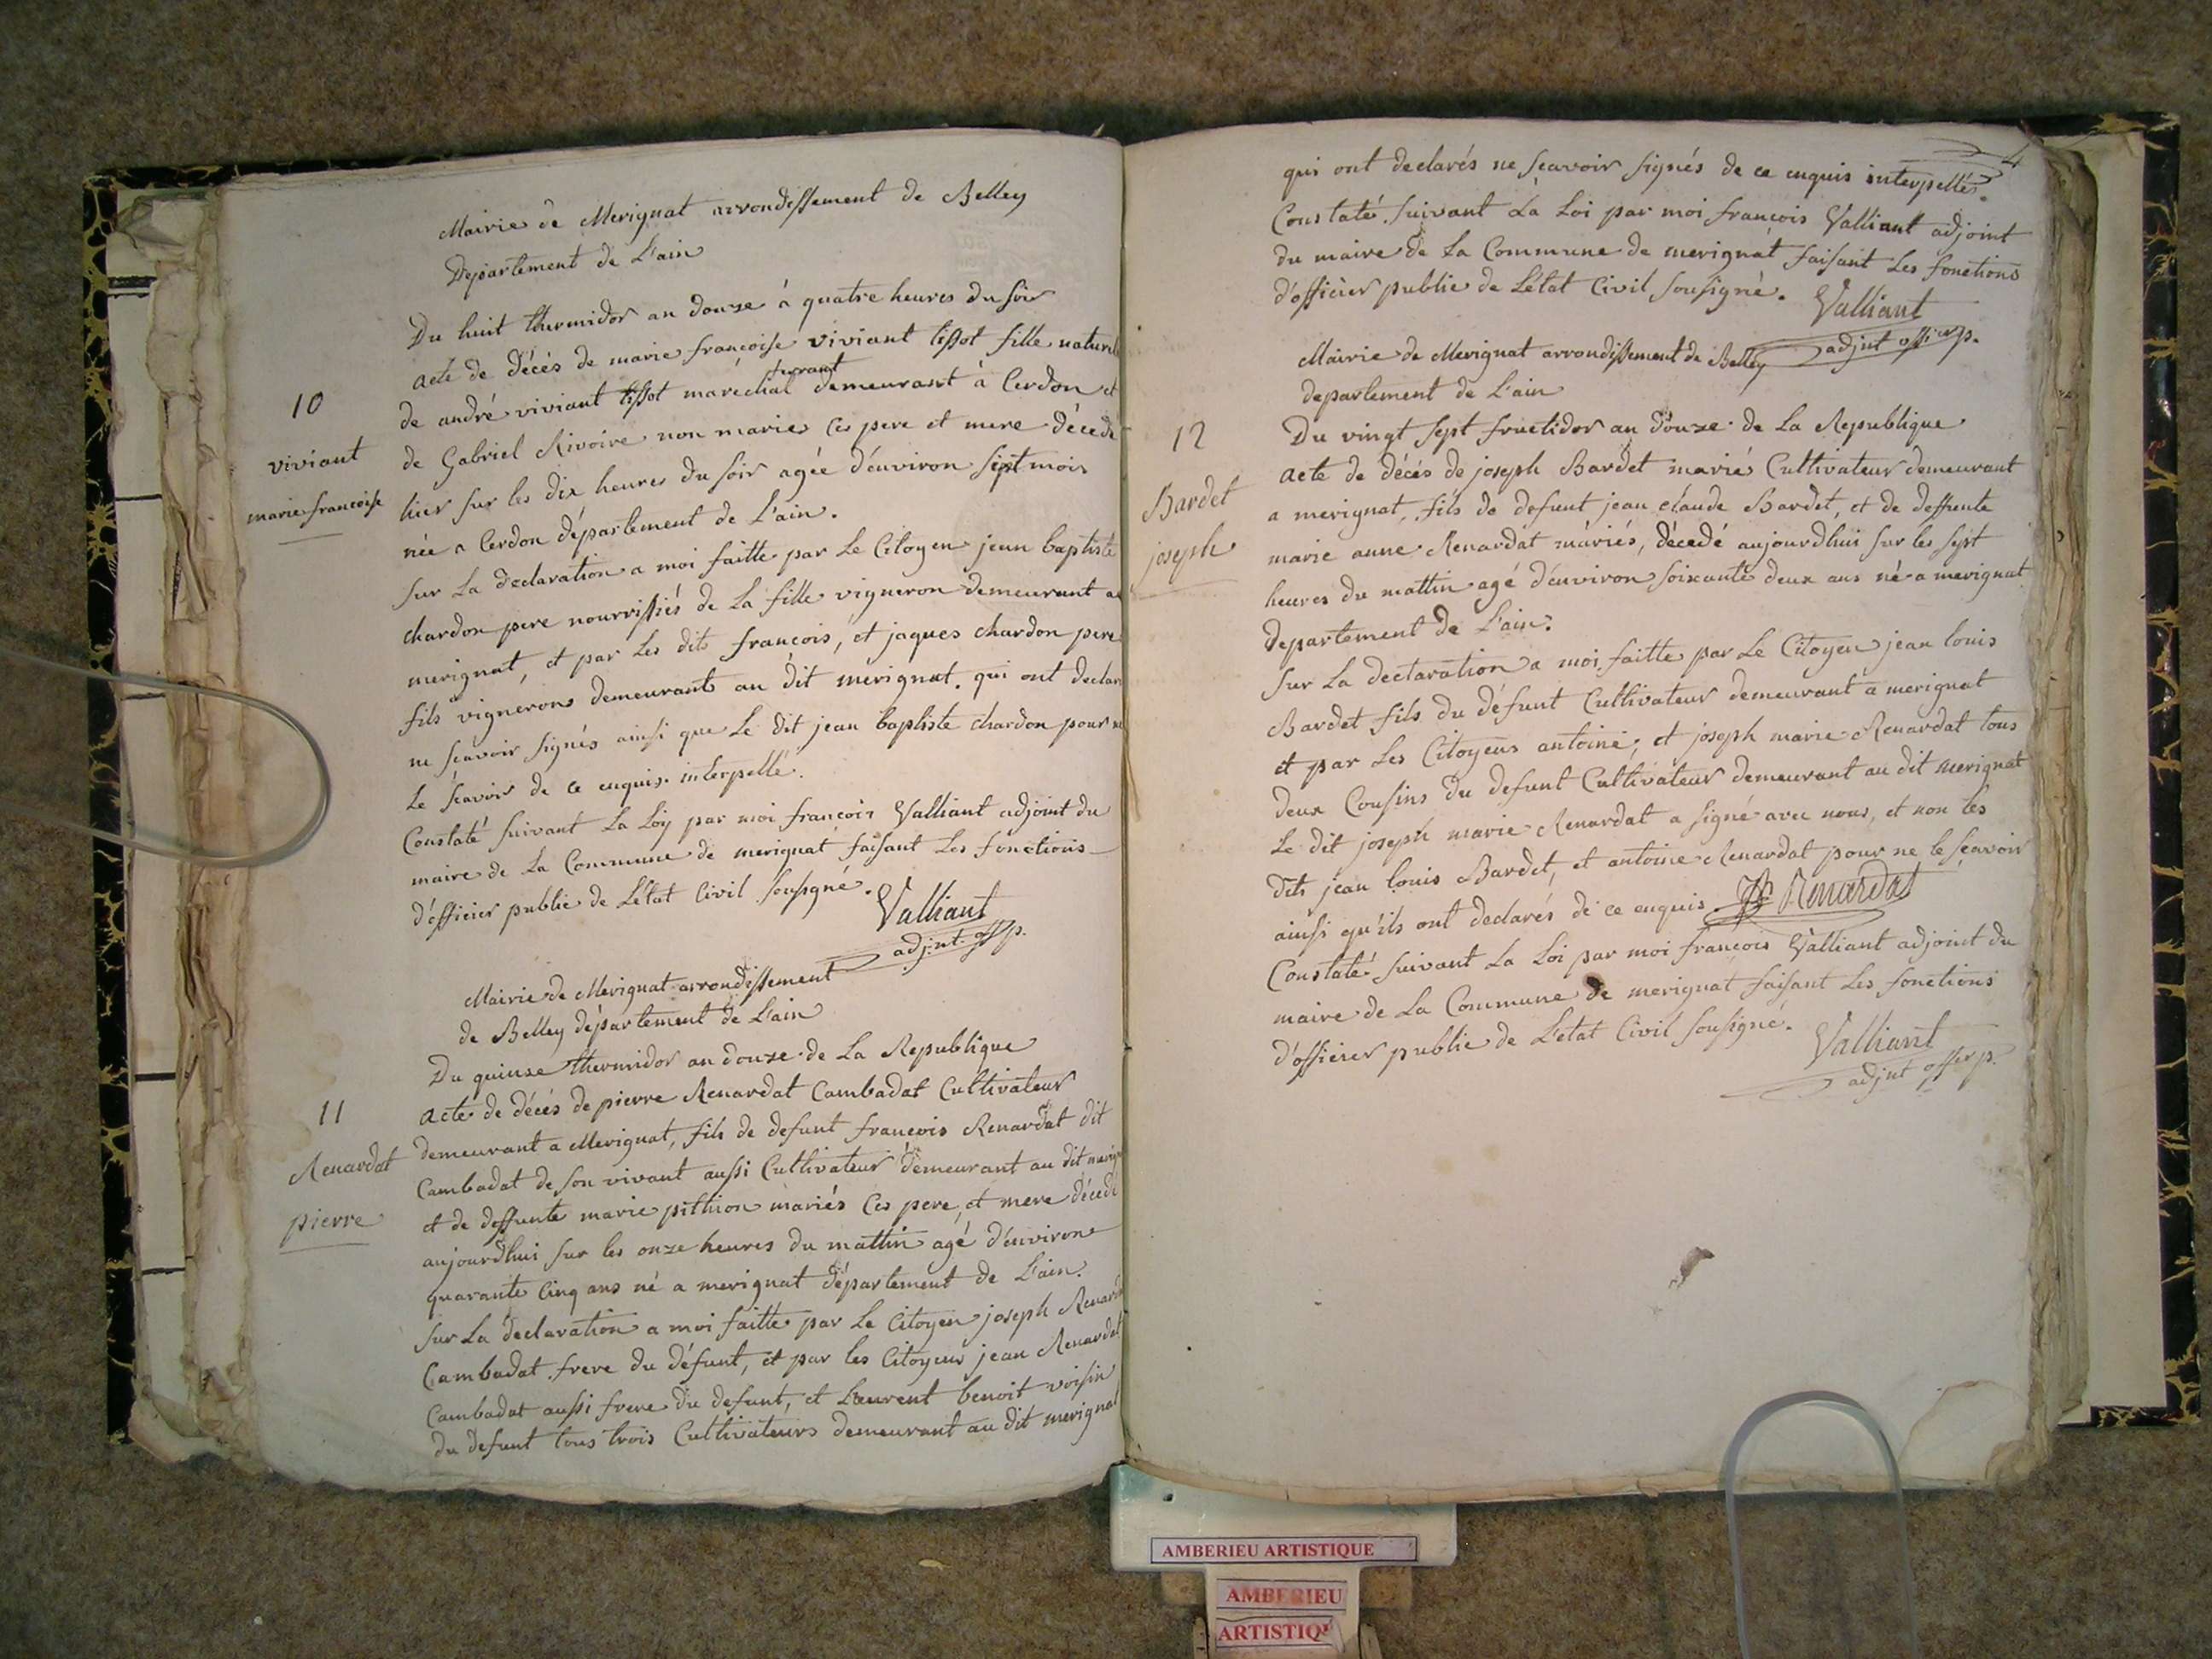 Mairie de Merignat arrondissement de Belley
Département de L'ain
Du huit thermidor an douze à quatre heures du soir
acte de décés de marie francoise viviant tissot fille naturel
ferrant
10
de andré viviant tissot maréchal demeurant à Cerdon et
viviant
de Gabriel Rivoire non mariés ces pere et mere décédé
marie francoise
hier sur les dix heures du soir agée d'environ sept mois
née a Cerdon département de L'ain.
sur La declaration a moi faitte par Le Citoyen jean baptiste
chardon pere nourrissiés de La fille vigneron demeurant a
merignat, et par Les dits francois, et jaques chardon pere
fils vignerons demeurants au dit mérignat. qui ont declar
ne scavoir signés ainsi que Le dit jean baptiste chardon pour ne
Le scavoir de ce enquis interpellé.
Constaté suivant La Loy par moi francois Valliant adjoint du
maire de La Commune de merignat faisant Les fonctions
d'officier public de L'état Civil sousigné.
Valliant
adjnt. off. p.
Mairie de Merignat arrondissement
de Belley département de L'ain
Du quinze thermidor an douze de La Republique
11
acte de décés de pierre Renardat Cambadat Cultivateur
Renardat
demeurant a Merignat, fils de defunt francois Renardat dit
pierre
Cambadat de son vivant aussi Cultivateur demeurant au dit merign
et de deffunte marie pithion mariés Ces pere, et mere décedé
aujourdhui sur les onze heures du mattin agé d'environ
quarante Cinq ans né a merignat département de L'ain.
sur La declaration a moi faitte par Le Citoyen joseph Renard
Cambadat frere du défunt, et par les Citoyens jean Renardat
Cambadat aussi frere du defunt, et Laurent benoit voisin
du defunt tous trois Cultivateurs demeurant au dit merignat
4
qui ont declarés ne scavoir signés de ce enquis interpellés.
Constaté suivant La Loi par moi francois Valliant adjoint
du maire de La Commune de merignat faisant Les fonctions
d'officier public de L'état Civil sousigné.
Valliant
adjnt officier p.
Mairie de Merignat arrondissement de Belley
departement de L'ain
12
Du vingt sept fructidor an douze de La Republique
Bardet
joseph
acte de décés de joseph Bardet mariés Cultivateur demeurant
a merignat, fils de defunt jean claude Bardet, et de deffunte
marie anne Renardat mariés, décedé aujourdhui sur les sept
heures du mattin agé d'environ soixante deux ans né a merignat
departement de L'ain.
sur La declaration a moi faitte par Le Citoyen jean louis
Bardet fils du défunt Cultivateur demeurant a merignat
et par Les Citoyens antoine, et joseph marie Renardat tous
deux Cousins du defunt Cultivateur demeurant au dit merignat
Le dit joseph marie Renardat a signé avec nous, et non les
dits jean louis Bardet, et antoine Renardat pour ne le scavoir
ainsi qu'ils ont declarés de ce enquis Renardat
Constaté suivant La Loi par moi francois Valliant adjoint du
maire de La Commune de merignat faisant Les fonctions
d'officier public de L'etat Civil sousigné.
Valliant
adjnt officier p.
AMBERIEU ARTISTIQUE
AMBERIEU
ARTISTIQU